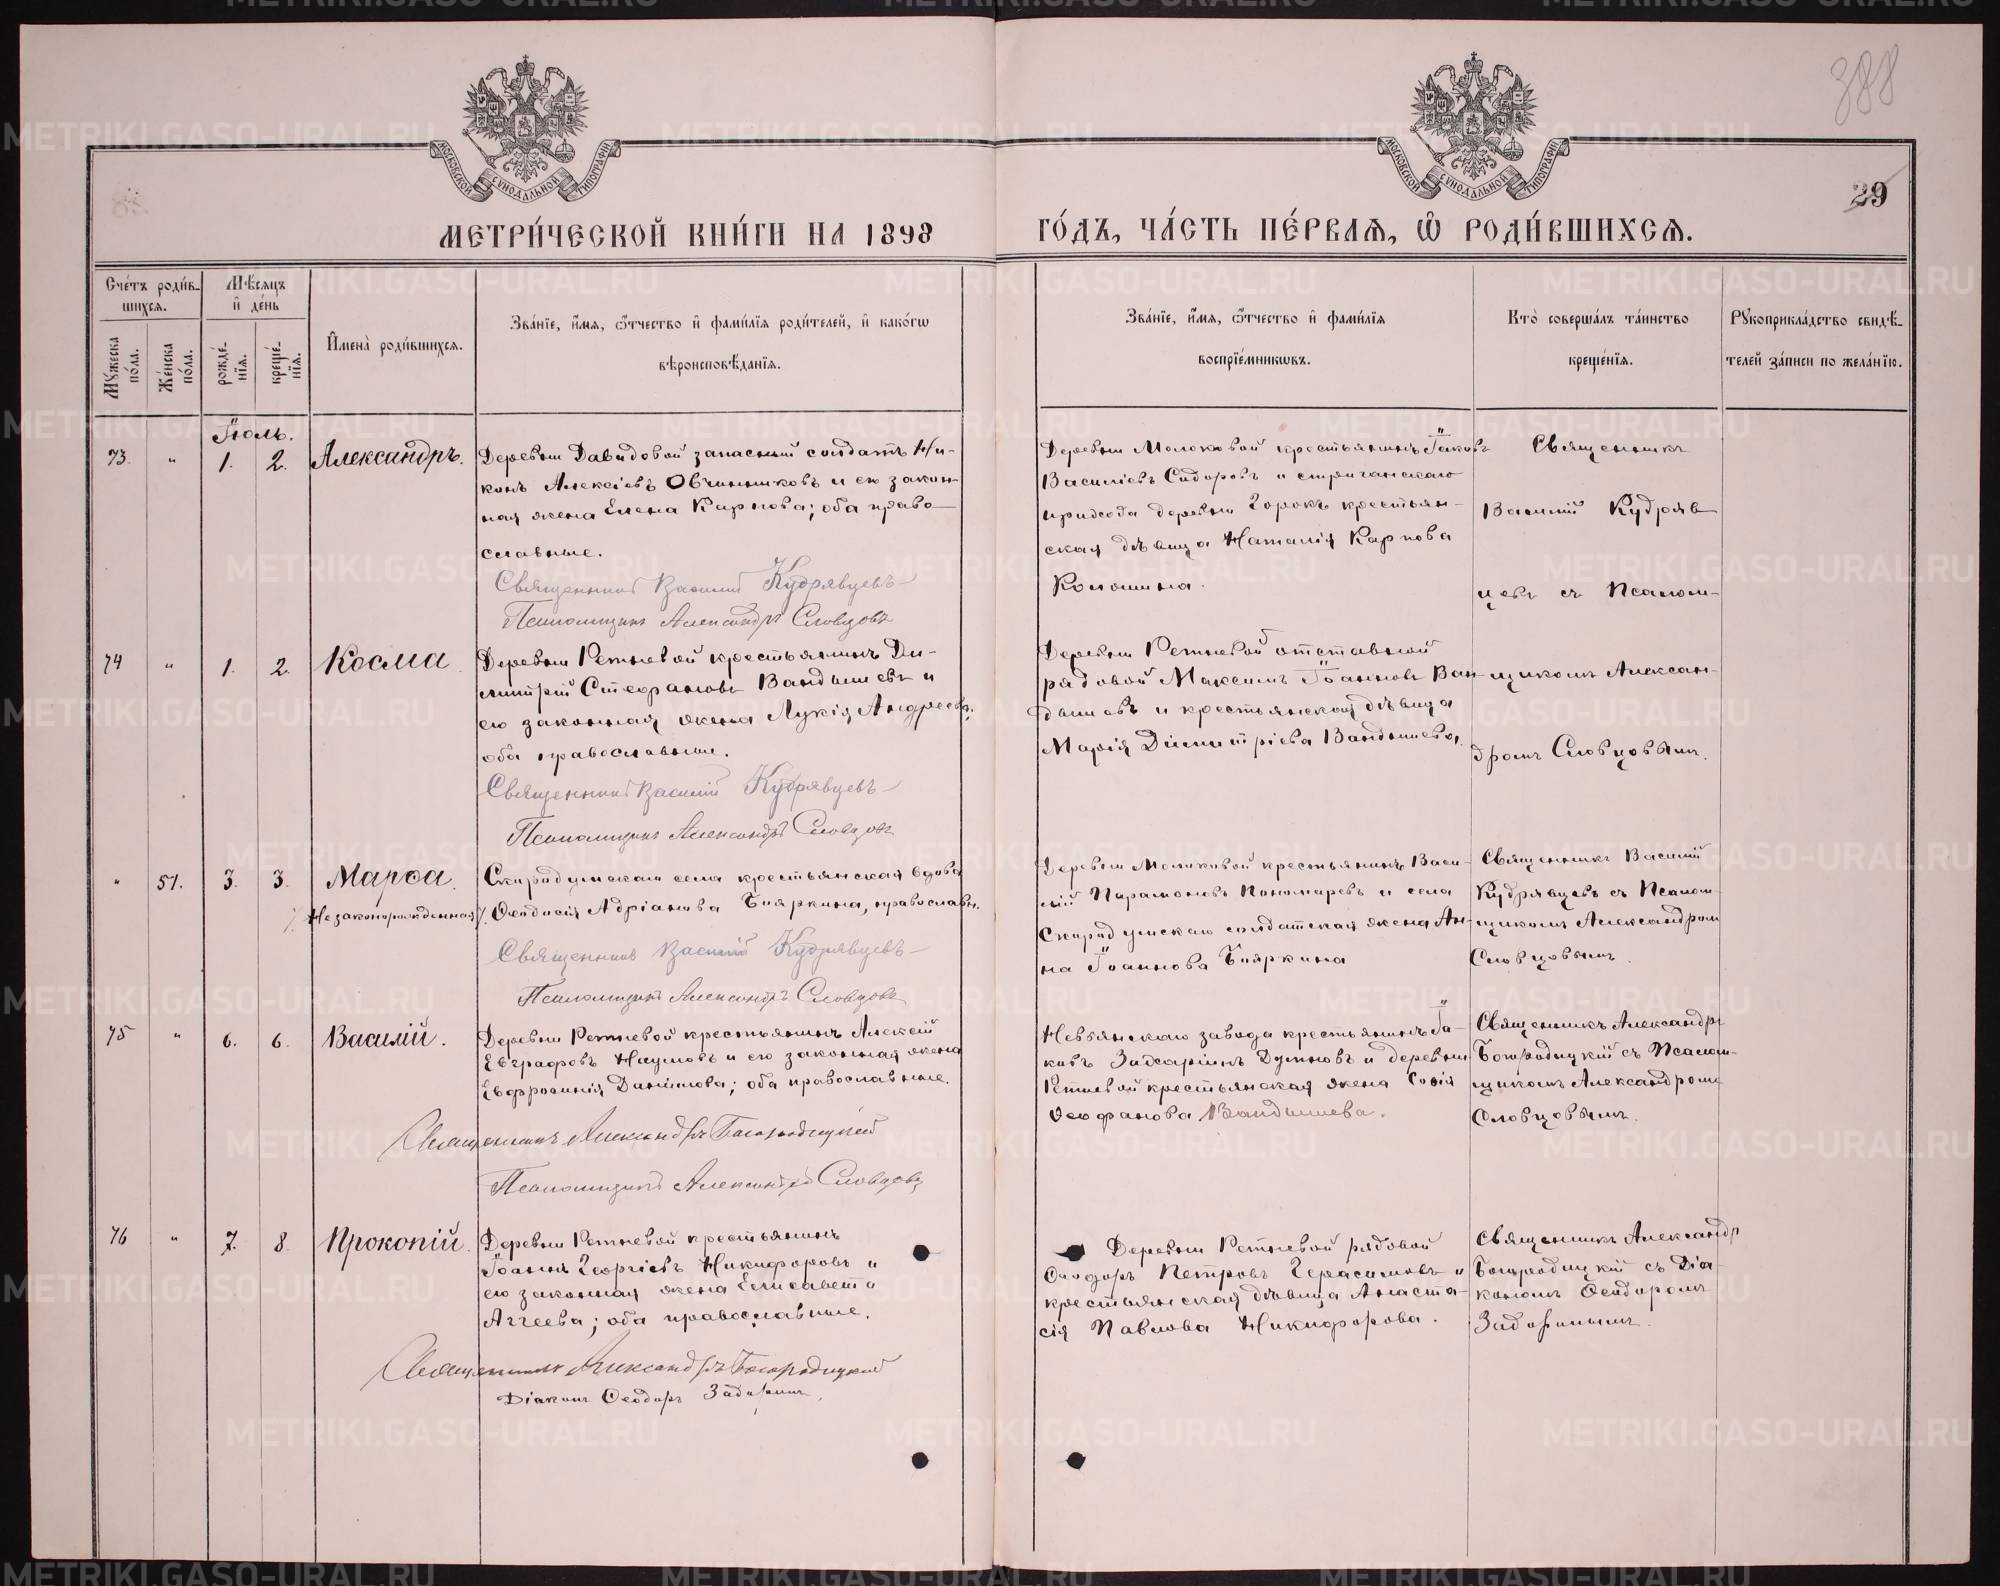 388
29
МОСКОВСКОЙ СѴНОДАЛЬНОЙ ТИПОГРАФІИ
МОСКОВСКОЙ СѴНОДАЛЬНОЙ ТИПОГРАФІИ
МЕТРИ́ЧЕСКОЙ КНИ́ГИ НА 1898 ГО́ДЪ, ЧА́СТЬ ПЕ́РВАѦ, Ѽ РОДИ́ВШИХСѦ.
Сче́тъ роди́в-
шихсѧ.
Мꙋ́жеска по́ла.
Же́нска по́ла.
Мѣ́сѧцъ и҆ де́нь
рожде́нїѧ.
креще́нїѧ.
И҆мена̀ роди́вшихсѧ.
Зва́нїе, и҆́мѧ, ѻ҆́тчество и҆ фами́лїѧ роди́телей, и҆ како́гѡ
вѣроисповѣ́данїѧ.
Зва́нїе, и҆́мѧ, ѻ҆́тчество и҆ фами́лїѧ
воспрїе́мникѡвъ.
Кто̀ соверша́лъ та́инство
креще́нїѧ.
Рꙋкоприкла́дство свидѣ́-
телей за́писи по жела́нїю.
Іюль.
73. " 1. 2. Александръ.
Деревни Давидовой запасный солдатъ Ни-
конъ Алексіевъ Овчинниковъ и его закон-
ная жена Елена Карпова; оба право-
славные.
Священникъ Василій Кудрявцевъ
Псаломщикъ Александръ Словцовъ
Деревни Молоковой крестьянинъ Іаковъ
Василіевъ Сидоровъ и стриганскаго
прихода деревни Горокъ крестьян-
ская дѣвица Наталія Карпова
Колошина.
Священникъ
Василій Кудряв
цевъ съ Псалом-
74 " 1. 2. Косма.
Деревни Ретневой крестьянинъ Ди-
митрій Стефановъ Вандышевъ и
его законная жена Лукія Андреева;
оба православные.
Священникъ Василій Кудрявцевъ
Псаломщикъ Александръ Словцовъ
Деревни Ретневой отставной
рядовой Максимъ Іоанновъ Ван-
дышевъ и крестьянская дѣвица
Марія Димитріева Вандышева.
щикомъ Алексан-
дромъ Словцовымъ.
" 51. 3. 3. Марѳа.
Незаконорожденная
Скородумскаго села крестьянская вдова
Ѳеодосія Адріанова Бояркина, православн.
Священникъ Василій Кудрявцевъ
Псаломщикъ Александръ Словцовъ
Деревни Молоковой крестьянинъ Васи-
лій Парамоновъ Пономаревъ и села
Скородумскаго солдатская жена Ан-
на Іоаннова Бояркина
Священникъ Василій
Кудрявцевъ съ Псалом-
щикомъ Александромъ
Словцовымъ.
75 " 6. 6. Василій.
Деревни Ретневой крестьянинъ Алексій
Евграфовъ Наумовъ и его законная жена
Евфросинія Данилова; оба православные.
Священникъ Александръ Богородицкій
Псаломщикъ Александръ Словцовъ
Невьянскаго завода крестьянинъ Іа-
ковъ Захаріинъ Думновъ и деревни
Ретневой крестьянская жена Софія
Ѳеофанова Вандышева.
Священникъ Александръ
Богородицкій съ Псалом-
щикомъ Александромъ
Словцовымъ.
76 " 7. 8. Прокопій.
Деревни Ретневой крестьянинъ
Іоаннъ Георгіевъ Никифоровъ и
его законная жена Елисавета
Аггеева; оба православные.
Священникъ Александръ Богородицкій
Діаконъ Ѳеодоръ Задоринъ.
Деревни Ретневой рядовой
Ѳеодоръ Петровъ Герасимовъ и
крестьянская дѣвица Анаста-
сія Павлова Никифорова.
Священникъ Александръ
Богородицкій съ Діа-
кономъ Ѳеодоромъ
Задоринымъ.
METRIKI.GASO-URAL.RU